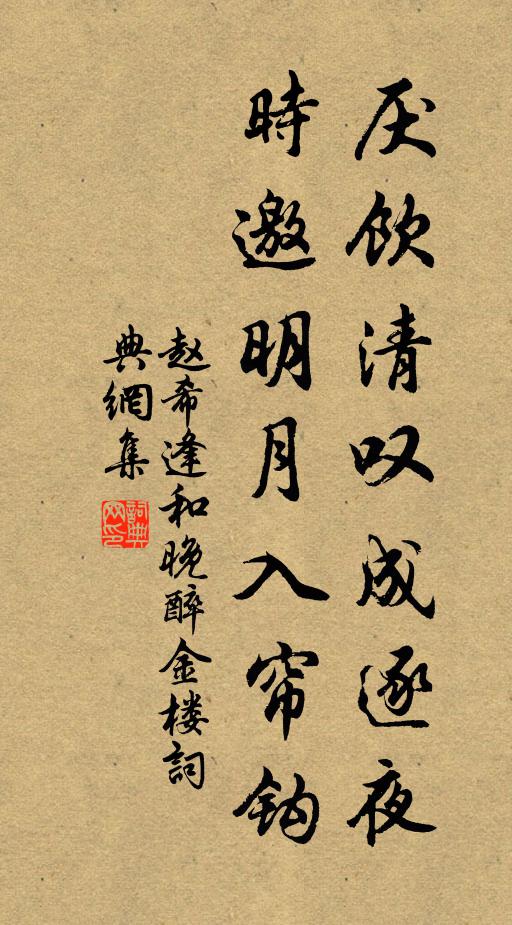 厌饮清叹成逐夜
時邀明月入帘钩
赵希逢和晚醉金楼詞
典網集
詞典网印